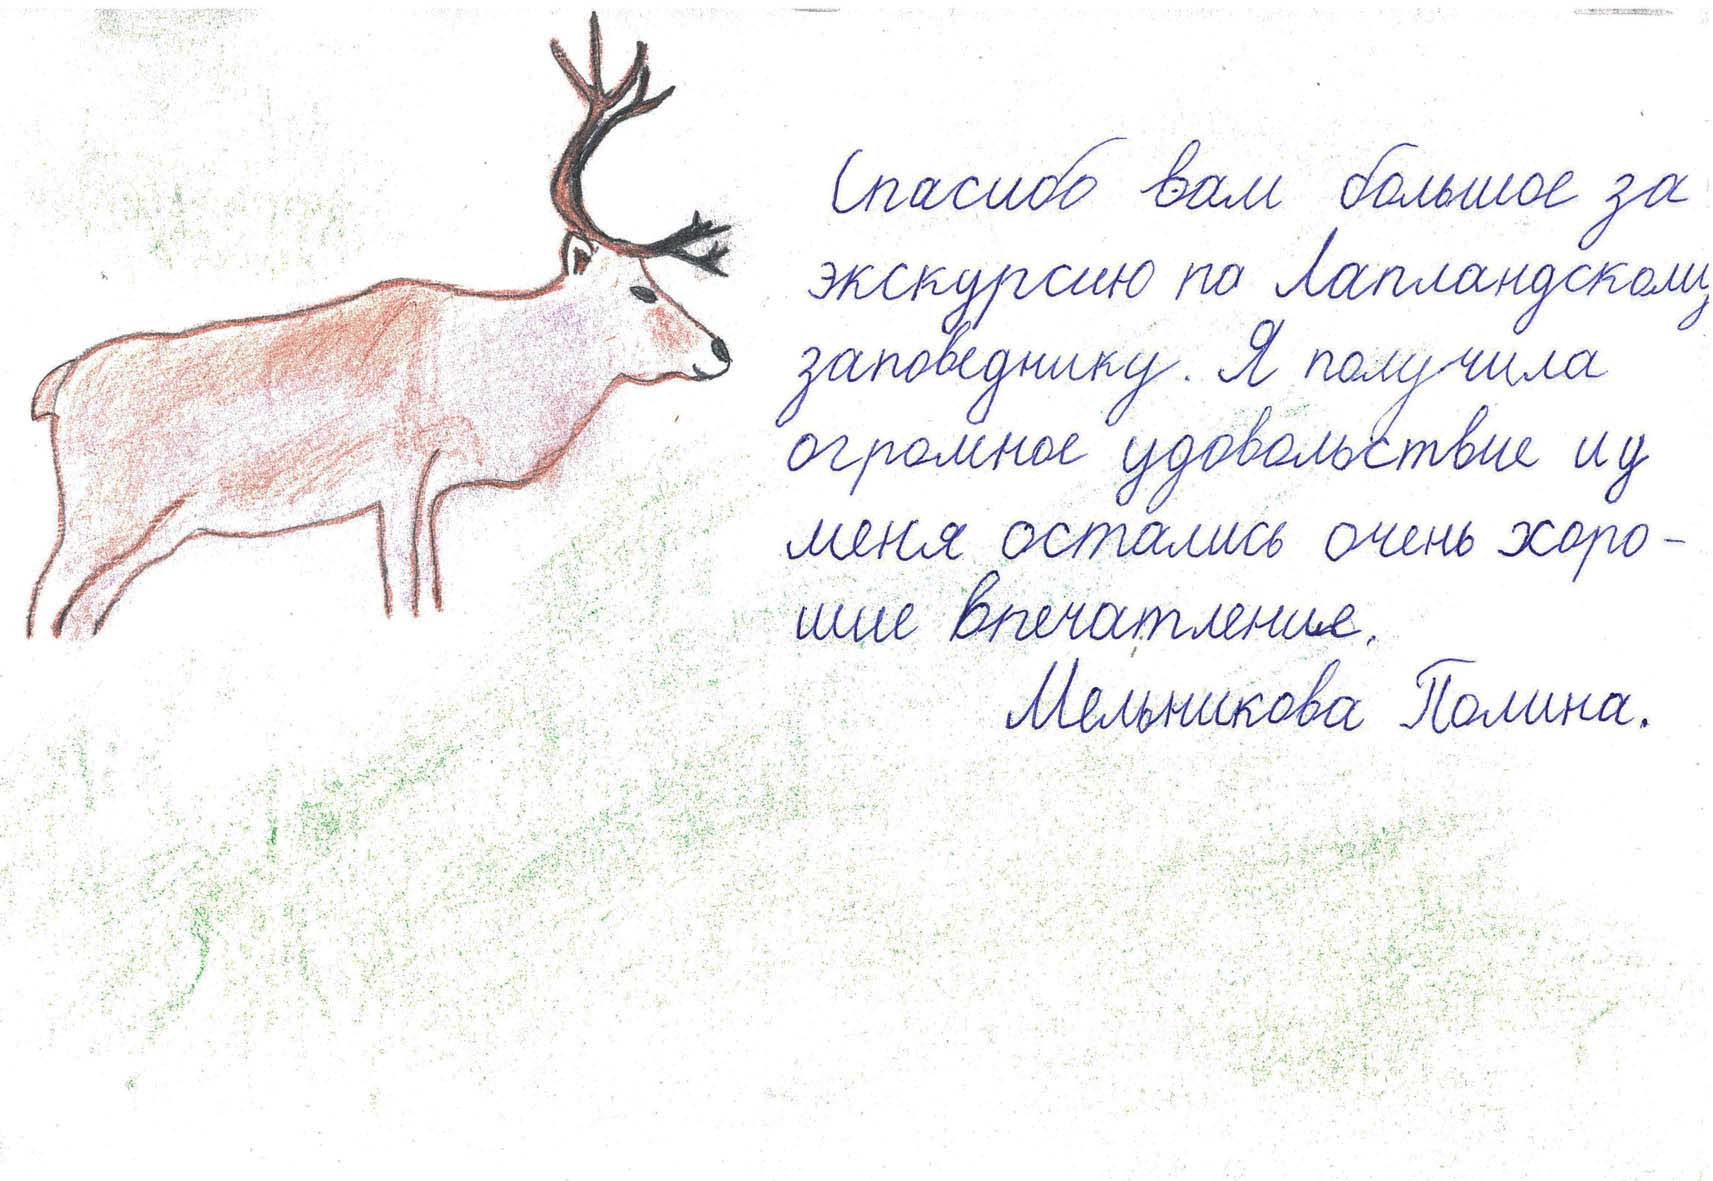 Спасибо вам большое за
экскурсию по Лапландскому
заповеднику. Я получила
огромное удовольствие и у
меня остались очень хоро-
шие впечатление.
Мельникова Полина.